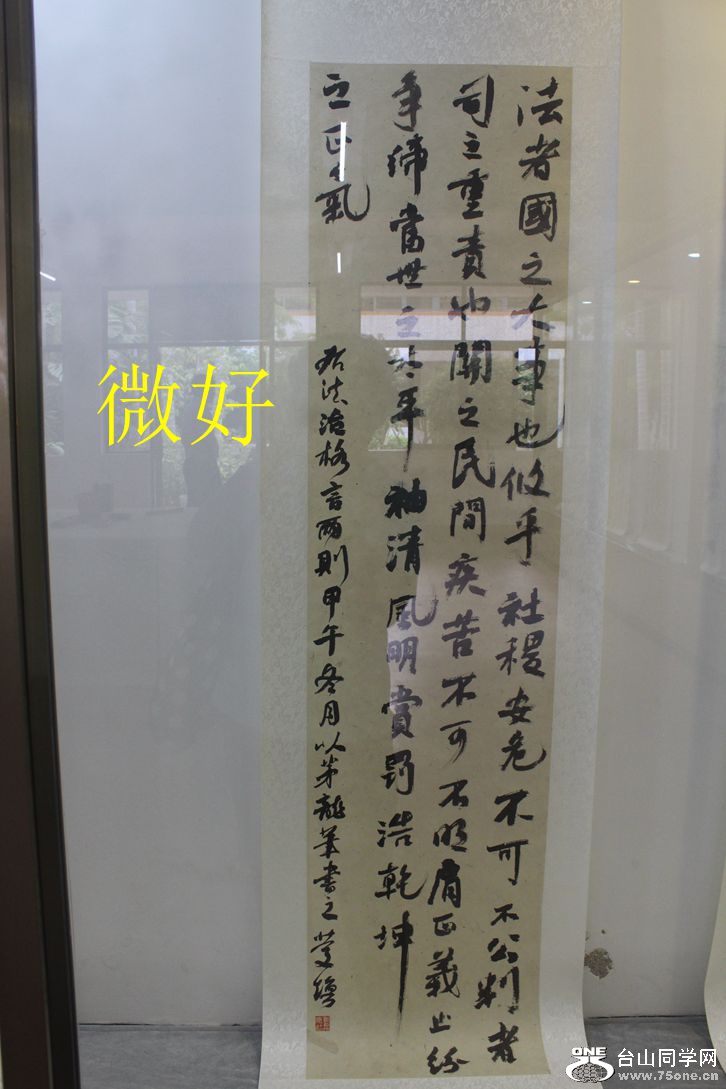 法者國之大事也攸乎社稷安危不可不公判者
司之重責也關之民間疾苦不可不明肩正義止紛
争締當世之太平袖清風明賞罰浩乾坤
之正氣
右法治格言兩則甲午冬月以茅龍筆書之
微好
ONE
台山同学网
www.75one.cn